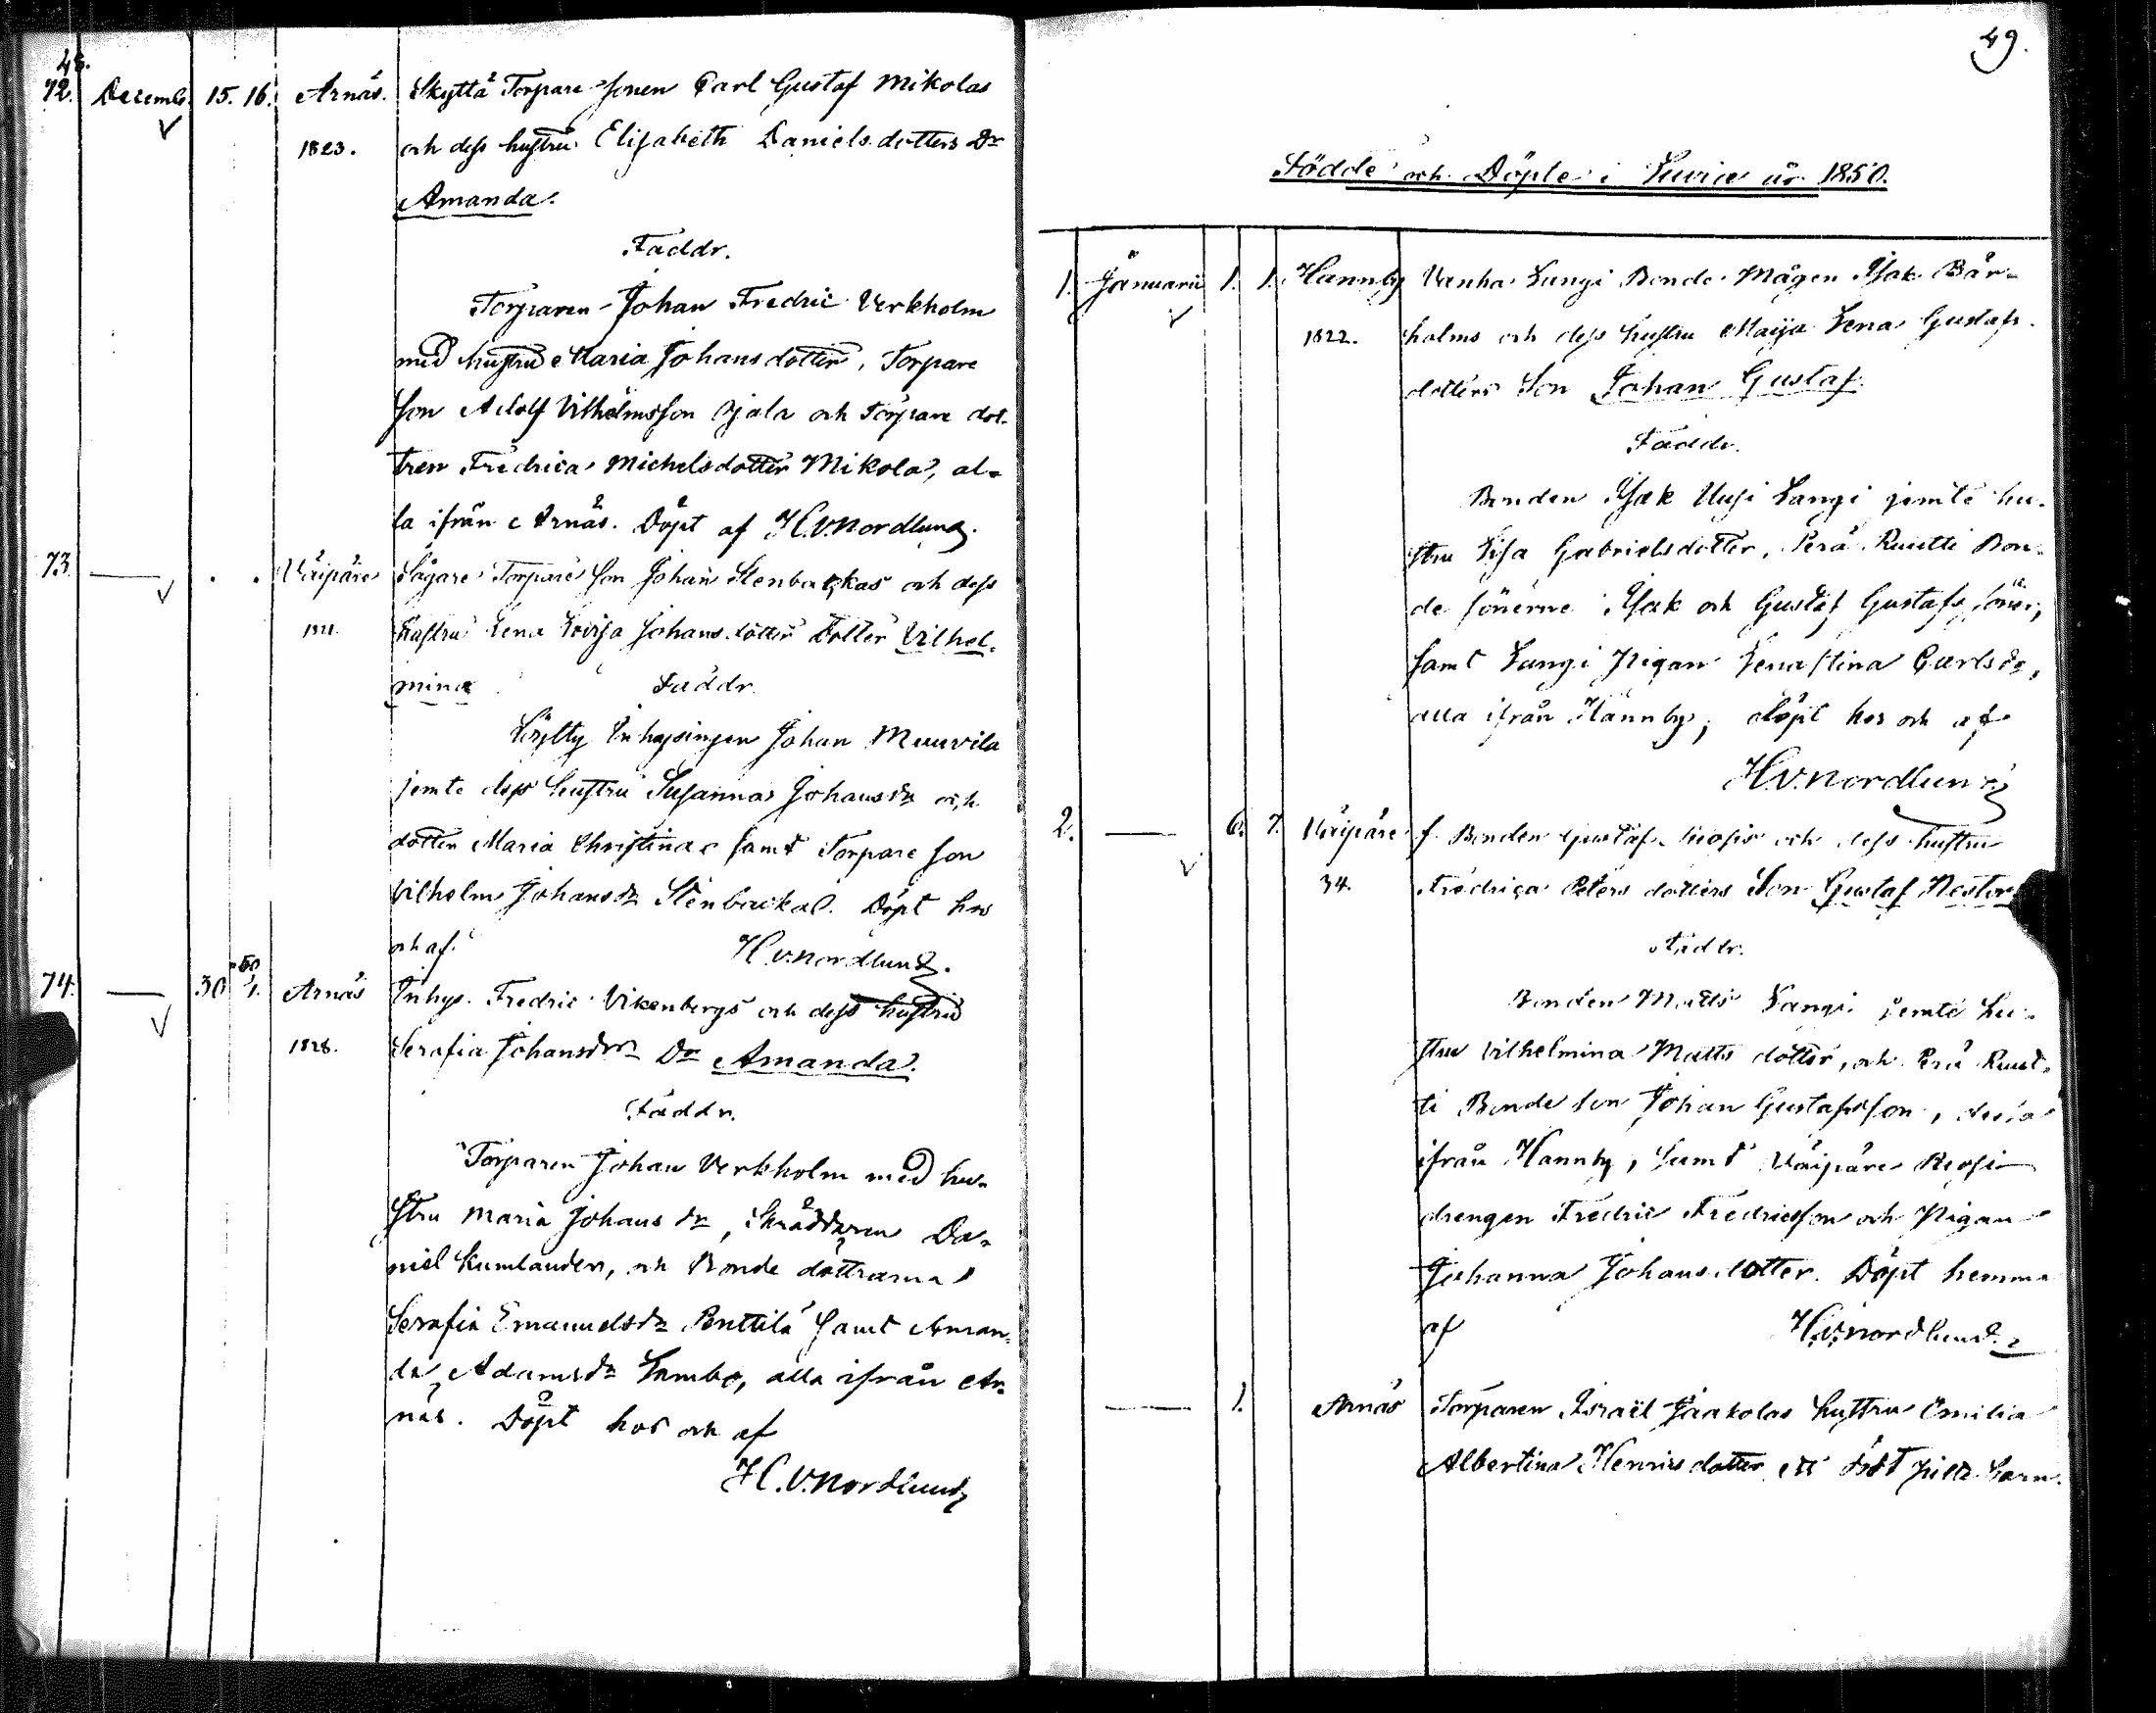 48.
72. Decemb. 15. 16. Arnäs. Skyttä Torpare sonen Carl Gustaf Mikolas
1823. och dess hustru Elisabeth Daniels dotters Dr
Amanda.
Faddr.
Torparen Johan Fredric Verkholm
med hustru Maria Johans dotter, Torpare
son Adolf Vilhelmsson Ojala och Torpare dot-
tren Fredrica Michelsdotter Mikola, al-
la ifrån Arnäs. Döpt af H.V.Nordlund.
73. — . . Väipäre Sågare Torpare son Johan Stenbackas och dess
1821. hustru Lena Lovisa Johans dotters Dotter Vilhel-
mina Faddr.
Inhysingen Johan Muurila
jemte dess hustru Susanna Johansdr och
dotter Maria Christina samt Torpare son
Vilhelm Johansdr Stenbacka. Döpt hos
och af. H.V.Nordlund.
74. — 30 50/1. Arnäs Inhys. Fredric Vikenbergs och dess hustru
1828. Serafia Johansdrs Dr Amanda.
Faddr.
Torparen Johan Verkholm med hu-
stru Maria Johans dr, Skräddaren Da-
niel Kumlander, och Bonde döttrarna
Serafia Emanuelsdr Penttilä samt Aman-
da Adamsdr Lambo, alla ifrån Ar-
näs. Döpt hos och af
H.V.Nordlund
49.
Födde och Döpte i Luvia år 1850.
1. Januarii 1. 1. Hannby Vanha Langi Bonde Mågen Isak Bär-
1822. holms och dess hustru Maija Lena Gustafs
dotters Son Johan Gustaf.
Faddr.
Bonden Isak Uusi Langi jemte hu-
stru Lisa Gabrielsdotter, Perä Ruutti Bon-
de sönerne Isak och Gustaf Gustafs söner,
samt Langi Pigan Lena Stina Carlsdr,
alla ifrån Hannby; döpt hos och af
H.V.Nordlund
2. — 6. 7. Väipäre f. Bonden Gustaf och dess hustru
34. Fredrica Peters dotters Son Gustaf Nestor
Faddr.
Bonden Matts Langi jemte hu-
stru Vilhelmina Matts dotter, och Perä Ruut-
ti Bonde son Johan Gustafsson, dessa
ifrån Hannby, samt Väipäre
drengen Fredric Fredricsson och Pigan
Johanna Johansdotter. Döpt hemma
af H.V.Nordlund.
— 1. Arnäs Torparen Israël Jaakolas hustru Emilia
Albertina Henricsdotter ett dödt Barn.